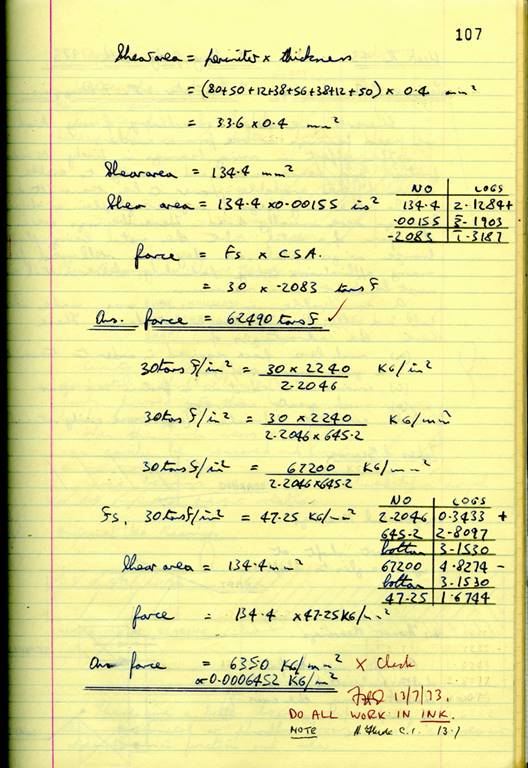 107
Shear area = perimeter x thickness
= (80+50+12+38+56+38+12+50) x 0.4 mm²
= 336 x 0.4 mm²
Shear area = 134.4 mm²
Shear area = 134.4 x 0.00155 ins²
NO LOGS
134.4 2.1284+
.00155 3̅.1903
.2083 1̅.3187
force = Fs x CSA.
= 30 x .2083 tons f
Ans. force = 62490 tons f ✓
30 tons f/in² = 30 x 2240 KG/in²
2.2046
30 tons f/in² = 30 x 2240 KG/mm²
2.2046 x 645.2
30 tons f/in² = 67200 KG/mm²
2.2046x645.2
Fs, 30 tons f/in² = 47.25 KG/mm²
NO LOGS
2.2046 0.3433 +
645.2 2.8097
bottom 3.1530
67200 4.8274 -
bottom 3.1530
47.25 1.6744
Shear area = 134.4 mm²
force = 134.4 x 47.25 KG/mm²
Ans force = 6350 KG/mm² x Check
or 0.0006452 KG/m²
13/7/73.
DO ALL WORK IN INK.
NOTE C.I. 13.7